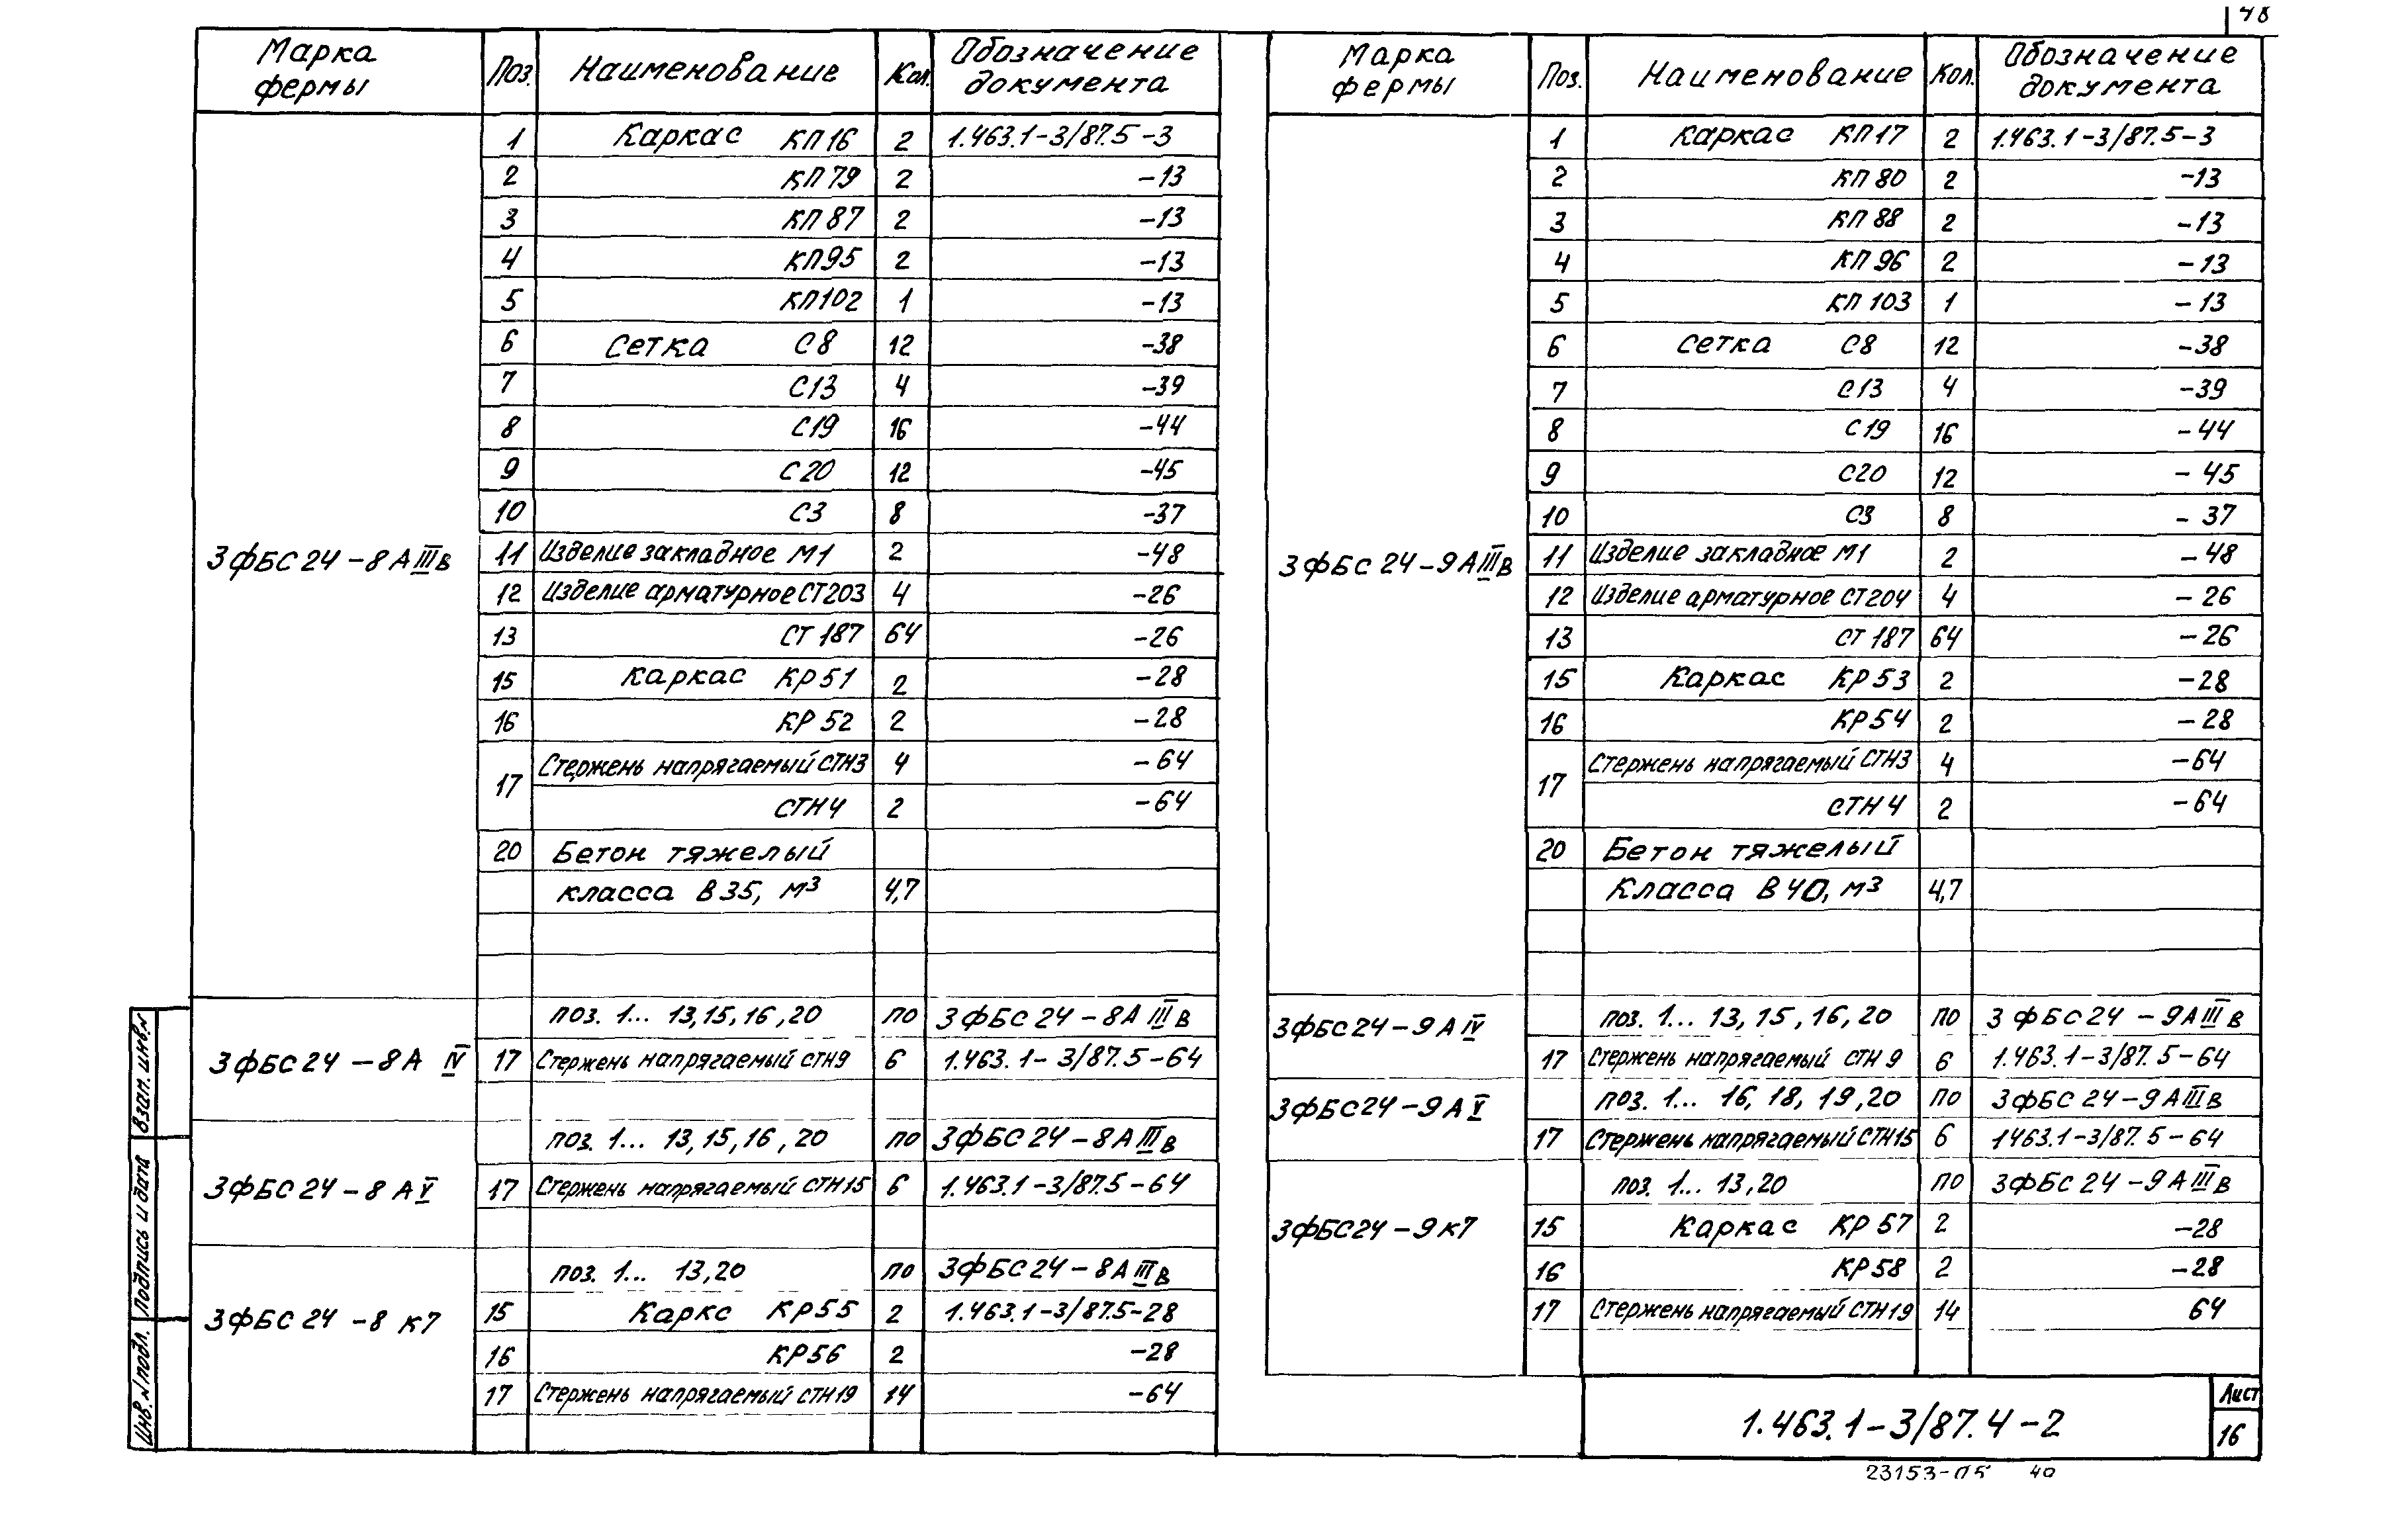 Марка фермы Поз. Наименование Кол. Обозначение документа
3ФБС24-8АIIIв
1 Каркас КП16 2 1.463.1-3/87.5-3
2 КП79 2 -13
3 КП87 2 -13
4 КП95 2 -13
5 КП102 1 -13
6 Сетка С8 12 -38
7 С13 4 -39
8 С19 16 -44
9 С20 12 -45
10 С3 8 -37
11 Изделие закладное М1 2 -48
12 Изделие арматурное СТ203 4 -26
13 СТ187 64 -26
15 Каркас КР51 2 -28
16 КР52 2 -28
17 Стержень напрягаемый СТН3 4 -64
СТН4 2 -64
20 Бетон тяжелый
класса В35, м³ 4,7
3ФБС24-8А IV
поз. 1... 13,15,16,20 по 3ФБС24-8АIIIв
17 Стержень напрягаемый СТН9 6 1.463.1-3/87.5-64
3ФБС24-8АV
поз. 1... 13,15,16,20 по 3ФБС24-8АIIIв
17 Стержень напрягаемый СТН15 6 1.463.1-3/87.5-64
3ФБС24-8К7
поз. 1... 13,20 по 3ФБС24-8АIIIв
15 Каркс КР55 2 1.463.1-3/87.5-28
16 КР56 2 -28
17 Стержень напрягаемый СТН19 14 -64
Марка фермы Поз. Наименование Кол. Обозначение документа
3ФБС24-9АIIIв
1 Каркас КП17 2 1.463.1-3/87.5-3
2 КП80 2 -13
3 КП88 2 -13
4 КП96 2 -13
5 КП103 1 -13
6 Сетка С8 12 -38
7 С13 4 -39
8 С19 16 -44
9 С20 12 -45
10 С3 8 -37
11 Изделие закладное М1 2 -48
12 Изделие арматурное СТ204 4 -26
13 СТ187 64 -26
15 Каркас КР53 2 -28
16 КР54 2 -28
17 Стержень напрягаемый СТН3 4 -64
СТН4 2 -64
20 Бетон тяжелый
Класса В40, м³ 4,7
3ФБС24-9АIV
поз. 1... 13,15,16,20 по 3ФБС24-9АIIIв
17 Стержень напрягаемый СТН9 6 1.463.1-3/87.5-64
3ФБС24-9АV
поз. 1... 16, 18, 19,20 по 3ФБС24-9АIIIв
17 Стержень напрягаемый СТН15 6 1463.1-3/87.5-64
3ФБС24-9К7
поз. 1... 13,20 по 3ФБС24-9АIIIв
15 Каркас КР57 2 -28
16 КР58 2 -28
17 Стержень напрягаемый СТН19 14 64
Взам. инв.№
Подпись и дата
Инв.№ подл.
1.463.1-3/87.4-2
Лист
16
23153-05 40